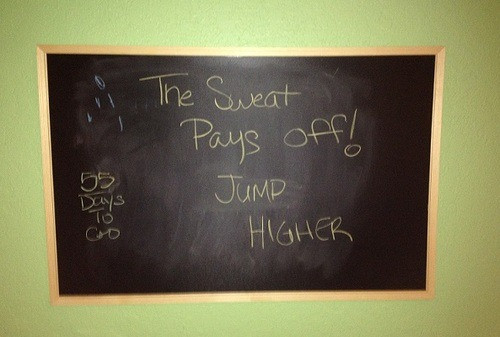 The Sweat
Pays off!
JUMP
HIGHER
55
Days
To
Go